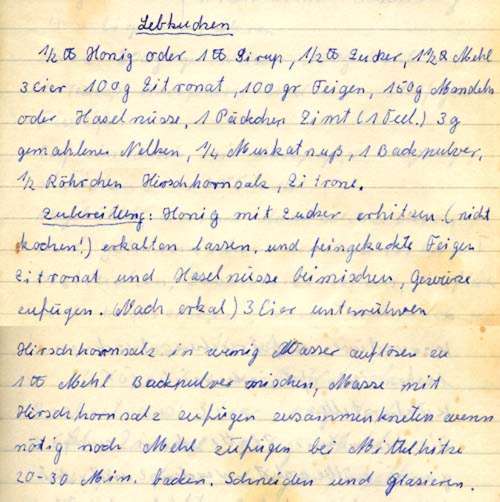 Lebkuchen
1/2 ℔ Honig oder 1 ℔ Sirup, 1/2 ℔ Zucker, 1 1/2 ℔ Mehl
3 Eier, 100 g Zitronat, 100 gr Feigen, 150 g Mandeln
oder Haselnüsse, 1 Päckchen Zimt (1 Teel.) 3 g
gemahlene Nelken, 1/4 Muskatnuß, 1 Backpulver,
1/2 Röhrchen Hirschhornsalz, Zitrone.
Zubereitung: Honig mit Zucker erhitzen (nicht
kochen!) erkalten lassen, und feingehackte Feigen
Zitronat und Haselnüsse beimischen, Gewürze
zufügen. (Nach erkal) 3 Eier unterrühren
Hirschhornsalz in wenig Wasser auflösen zu
1 ℔ Mehl Backpulver mischen, Masse mit
Hirschhornsalz zufügen zusammenkneten wenn
nötig noch Mehl zufügen bei Mittelhitze
20-30 Min. backen. Schneiden und Glasieren.